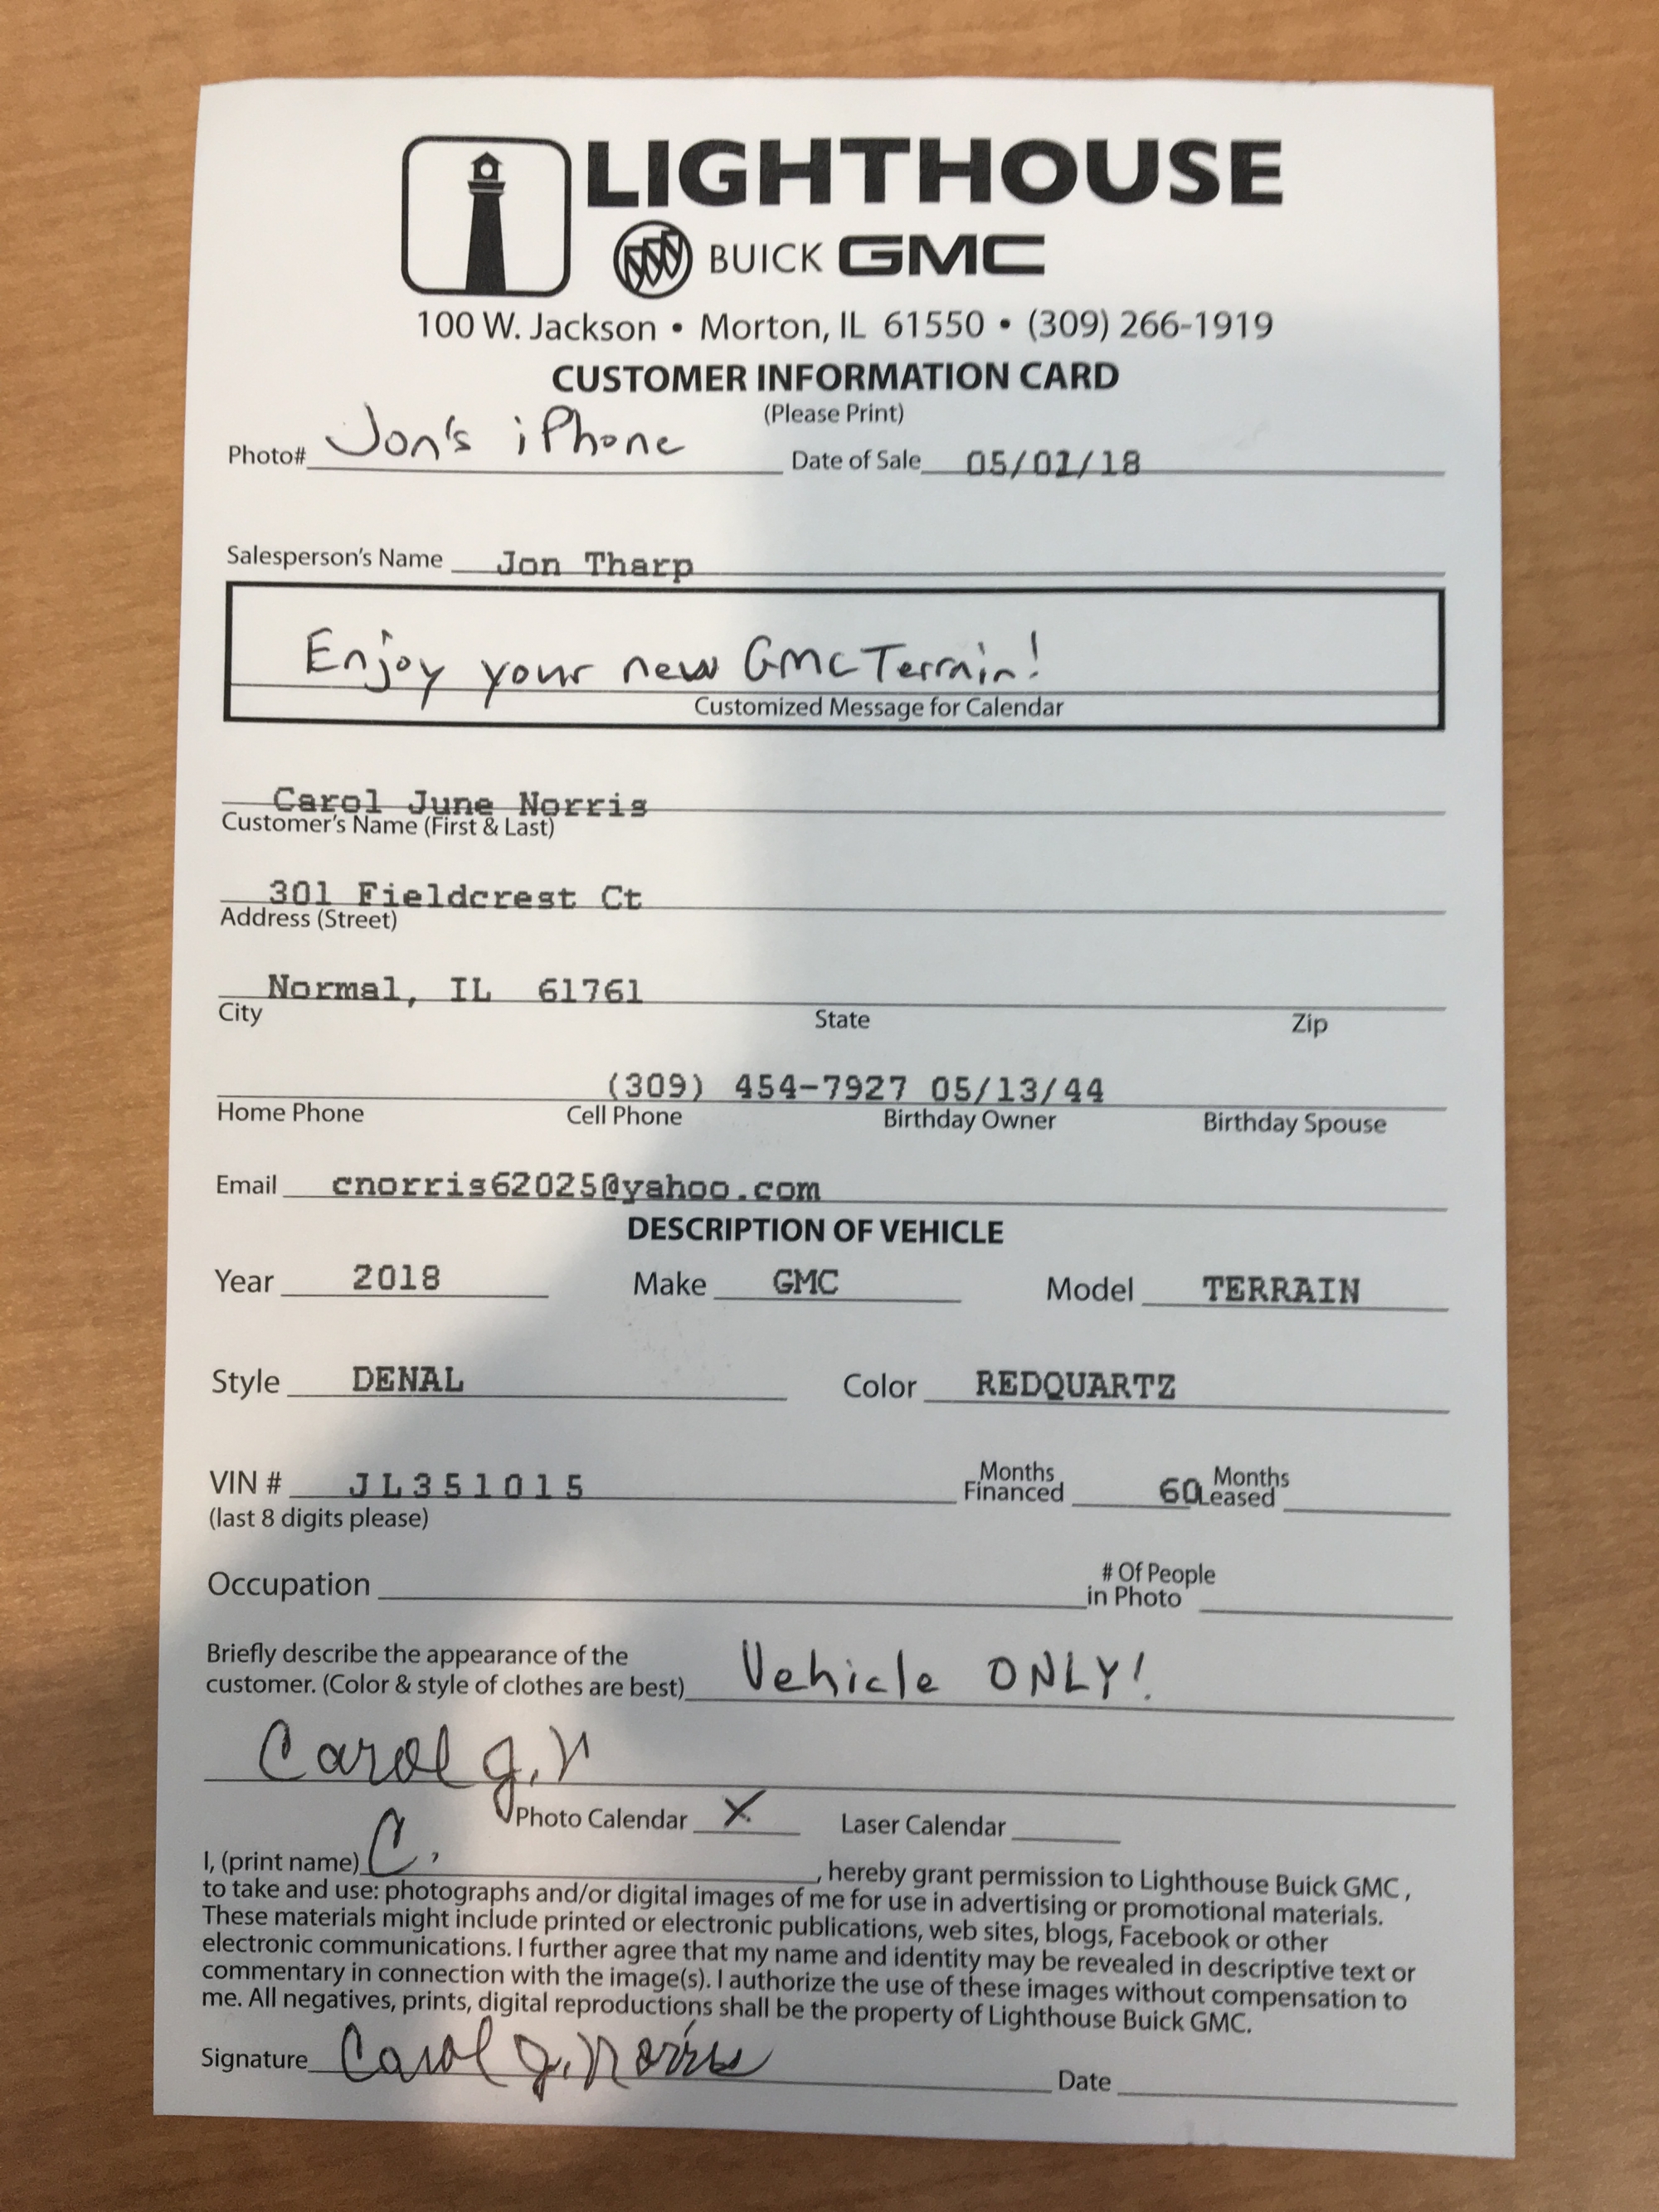 LIGHTHOUSE
BUICK GMC
100 W. Jackson • Morton, IL 61550 • (309) 266-1919
CUSTOMER INFORMATION CARD
(Please Print)
Photo# Jon's iPhone Date of Sale 05/01/18
Salesperson's Name Jon Tharp
Enjoy your new GMC Terrain!
Customized Message for Calendar
Carol June Norris
Customer's Name (First & Last)
301 Fieldcrest Ct
Address (Street)
Normal, IL 61761
City State Zip
(309) 454-7927 05/13/44
Home Phone Cell Phone Birthday Owner Birthday Spouse
Email cnorris62025@yahoo.com
DESCRIPTION OF VEHICLE
Year 2018 Make GMC Model TERRAIN
Style DENAL Color REDQUARTZ
VIN # JL351015 Months Financed 60 Months Leased
(last 8 digits please)
Occupation # Of People in Photo
Briefly describe the appearance of the
customer. (Color & style of clothes are best) Vehicle ONLY!
Carol J. N
Photo Calendar X Laser Calendar
I, (print name) C. , hereby grant permission to Lighthouse Buick GMC ,
to take and use: photographs and/or digital images of me for use in advertising or promotional materials.
These materials might include printed or electronic publications, web sites, blogs, Facebook or other
electronic communications. I further agree that my name and identity may be revealed in descriptive text or
commentary in connection with the image(s). I authorize the use of these images without compensation to
me. All negatives, prints, digital reproductions shall be the property of Lighthouse Buick GMC.
Signature Carol J. Norris Date